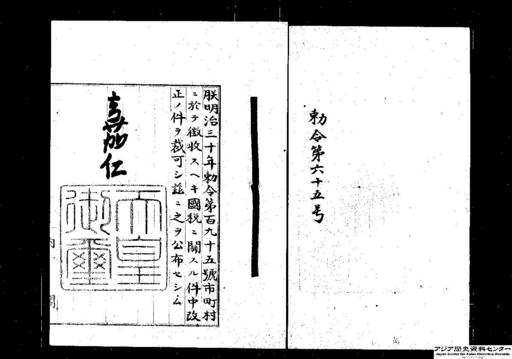 勅令第六十五号
朕明治三十年勅令第百九十五號市町村
ニ於テ徴收スヘキ國税ニ關スル件中改
正ノ件ヲ裁可シ茲ニ之ヲ公布セシム
嘉仁
天皇御璽
内閣
アジア歴史資料センター
Japan Center for Asian Historical Records